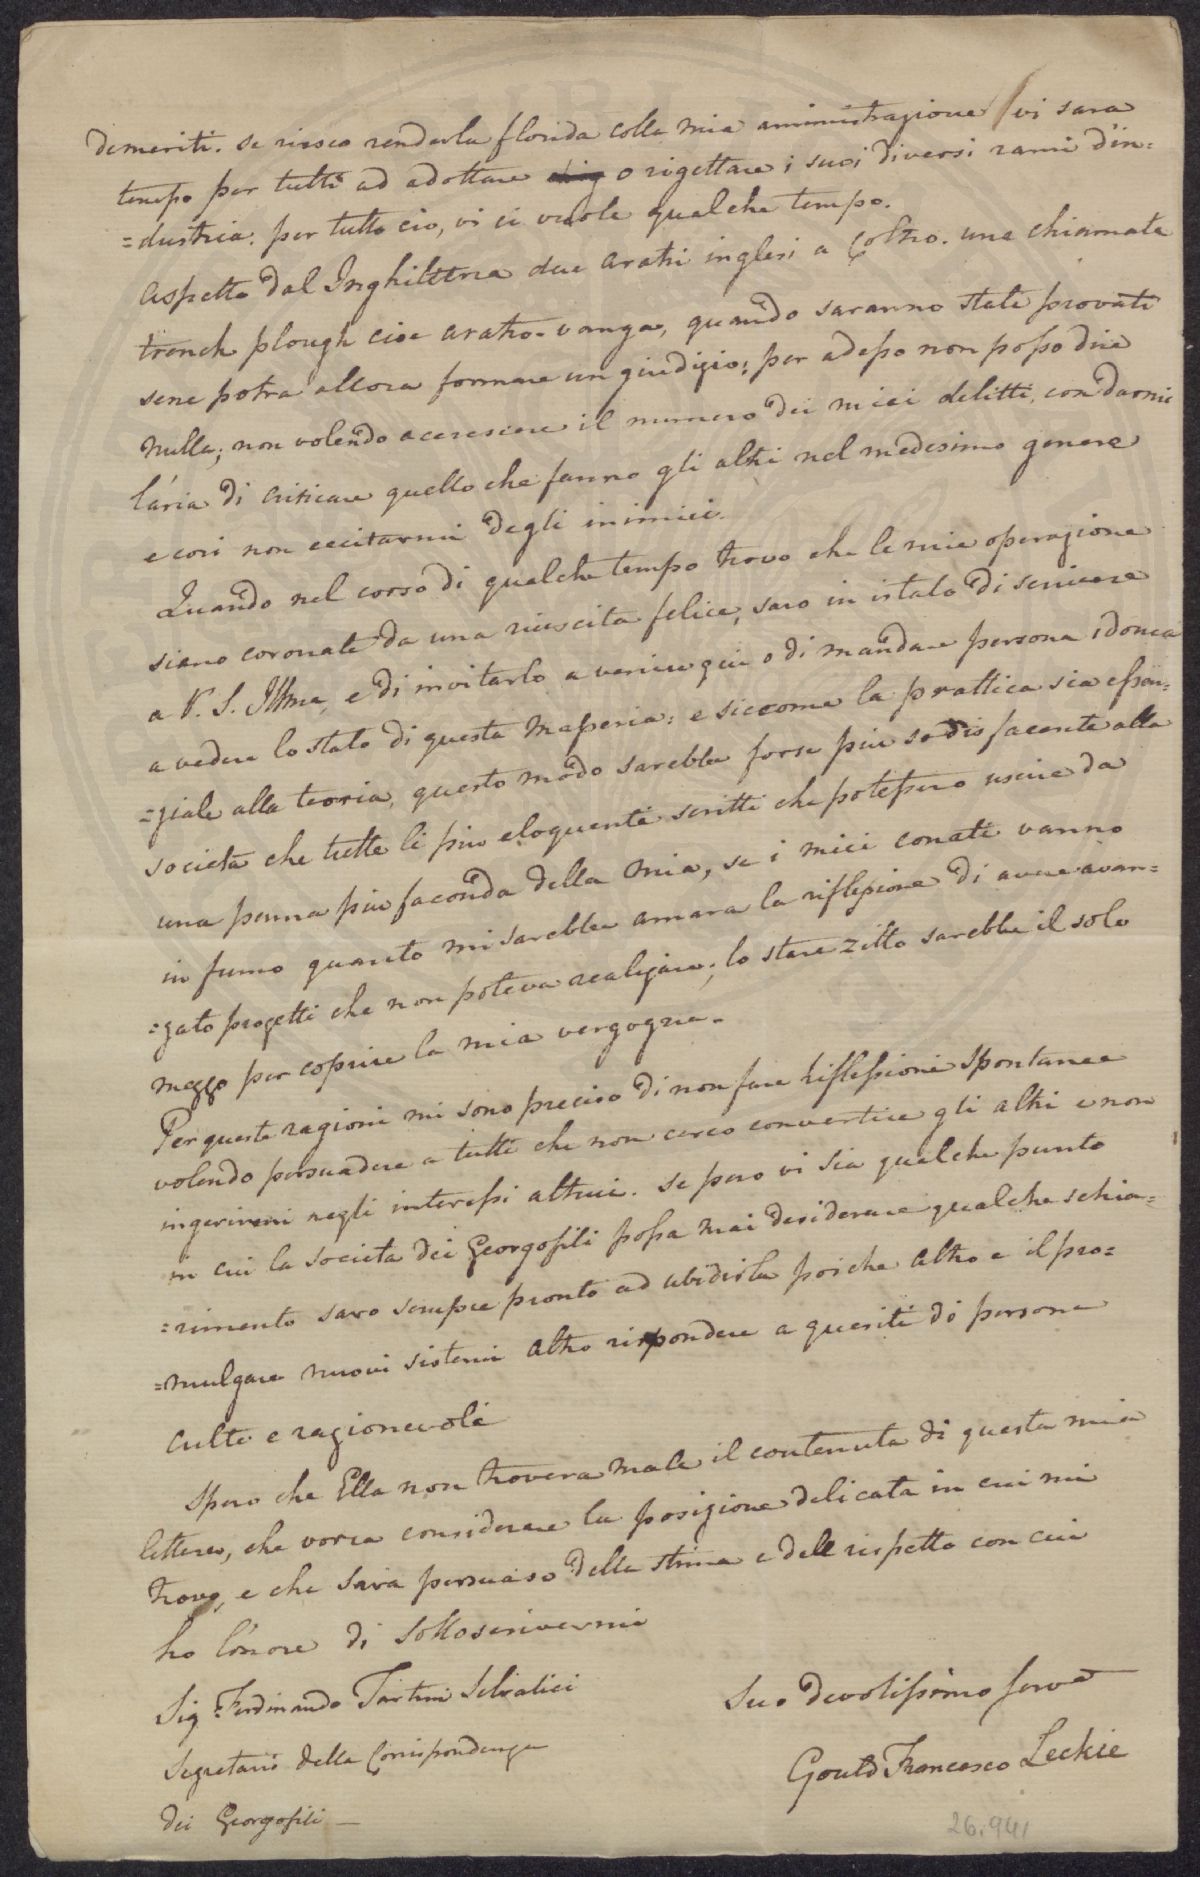 demeriti. se riesco renderla florida colla mia amministrazione vi sara
tempo per tutti ad adottare o rigettare i suoi diversi rami d'in=
=dustria. per tutto cio, vi ci vuole qualche tempo.
Aspetto dal Inghilterra due aratri inglesi a Coltro. una chiamata
trench plough cioe aratro-vanga, quando saranno stati provati
sene potra allora formare un giudizio; per adesso non posso dire
nulla; non volendo accrescere il numero dei miei delitti, con darmi
l'aria di criticare quello che fanno gli altri nel medesimo genere
e cosi non eccitarmi degli inimici.
Quando nel corso di qualche tempo trovo che le mie operazione
siano coronate da una riuscita felice, saro in istato di scrivere
a V. S. Illma, e di invitarlo a venire qui o di mandare persona idonea
a vedere lo stato di questa Masseria; e siccome la prattica sia essen=
=ziale alla teoria, questo modo sarebbe forse piu sodisfacente alla
societa che tutte li piu eloquenti scritti che potessero uscire da
una penna piu faconda della mia, se i miei conati vanno
in fumo quanto mi sarebbe amara la riflessione di avere avan=
=zato progetti che non poteva realizare; lo stare zitto sarebbe il solo
mezzo per coprire la mia vergogna.
Per queste ragioni mi sono preciso di non fare riflessioni spontanee
volendo persuadere a tutti che non cerco convertire gli altri e non
ingerirmi negli interessi altrui. se pero vi sia qualche punto
in cui la societa dei Georgofili possa mai desiderare qualche schia=
=rimento saro sempre pronto ad ubidirla poiche altro e il pro=
=mulgare nuovi sistemi altro rispondere a quesiti di persone
culte e ragionevoli
Spero che Ella non trovera male il contenuta di questa mia
lettera, che vorra considerare la posizione delicata in cui mi
trovo, e che sara persuaso della stima e dell rispetto con cui
ho l'onore di sottoscrivermi
Sig. Ferdinando Tartini Selvatici
Suo devotissimo servo
Segretario della Corrispondenza
Gould Francesco Leckie
dei Georgofili
26.941